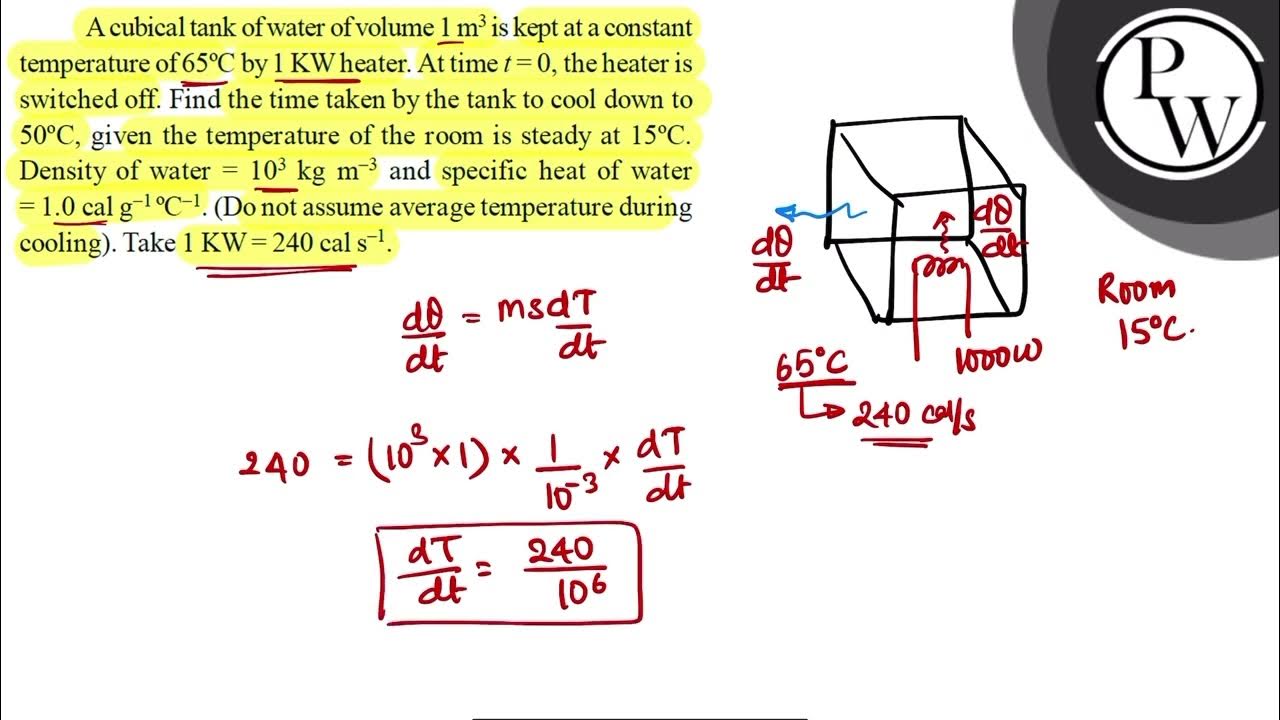 A cubical tank of water of volume 1 m³ is kept at a constant
temperature of 65ºC by 1 KW heater. At time t = 0, the heater is
switched off. Find the time taken by the tank to cool down to
50ºC, given the temperature of the room is steady at 15ºC.
Density of water = 10³ kg m⁻³ and specific heat of water
= 1.0 cal g⁻¹ ºC⁻¹. (Do not assume average temperature during
cooling). Take 1 KW = 240 cal s⁻¹.
P
W
dθ/dt
dθ/dt
Room
15°C.
1000W
65°C
240 cal/s
dθ/dt = ms dT/dt
240 = (10³ × 1) × 1/10⁻³ × dT/dt
dT/dt = 240/10⁶